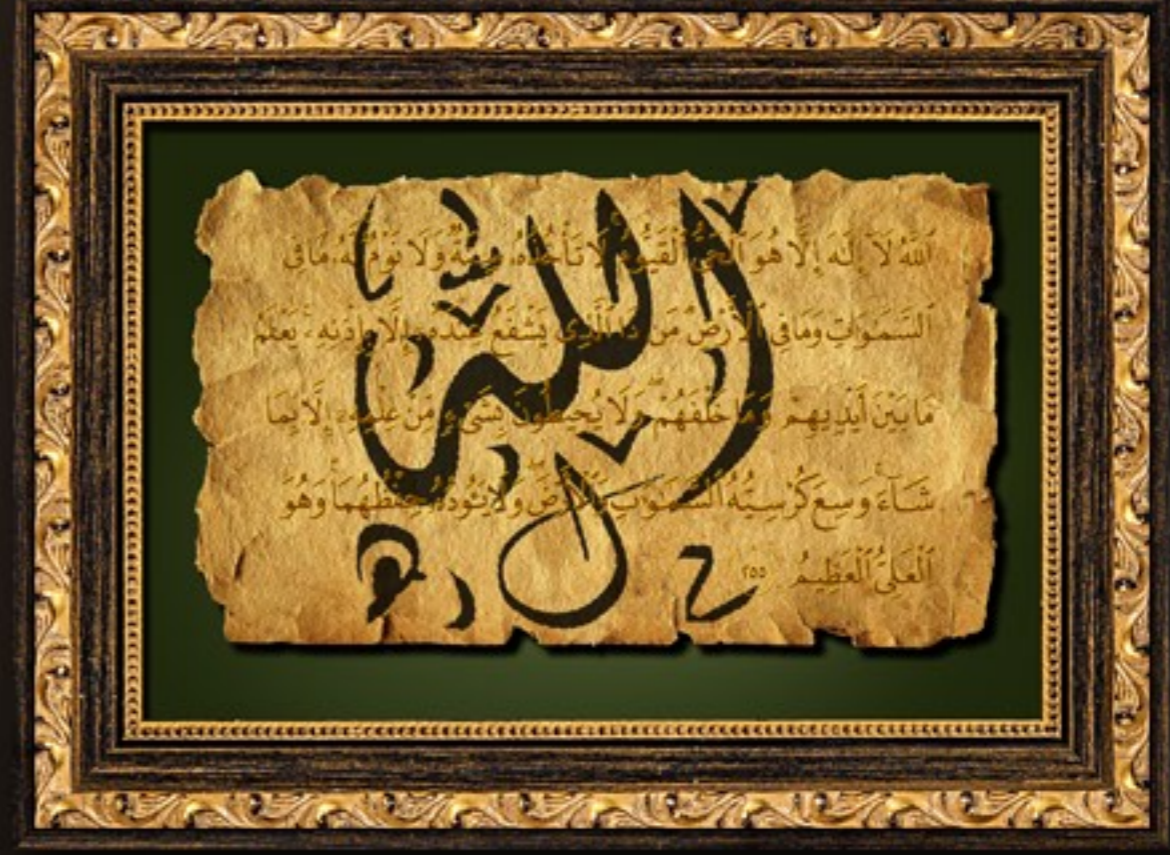 الله
ٱللَّهُ لَآ إِلَٰهَ إِلَّا هُوَ ٱلْحَىُّ ٱلْقَيُّومُ لَا تَأْخُذُهُۥ سِنَةٌ وَلَا نَوْمٌ لَّهُۥ مَا فِى
ٱلسَّمَٰوَٰتِ وَمَا فِى ٱلْأَرْضِ مَن ذَا ٱلَّذِى يَشْفَعُ عِندَهُۥٓ إِلَّا بِإِذْنِهِۦ يَعْلَمُ
مَا بَيْنَ أَيْدِيهِمْ وَمَا خَلْفَهُمْ وَلَا يُحِيطُونَ بِشَىْءٍ مِّنْ عِلْمِهِۦٓ إِلَّا بِمَا
شَآءَ وَسِعَ كُرْسِيُّهُ ٱلسَّمَٰوَٰتِ وَٱلْأَرْضَ وَلَا يَـُٔودُهُۥ حِفْظُهُمَا وَهُوَ
ٱلْعَلِىُّ ٱلْعَظِيمُ ٢٥٥